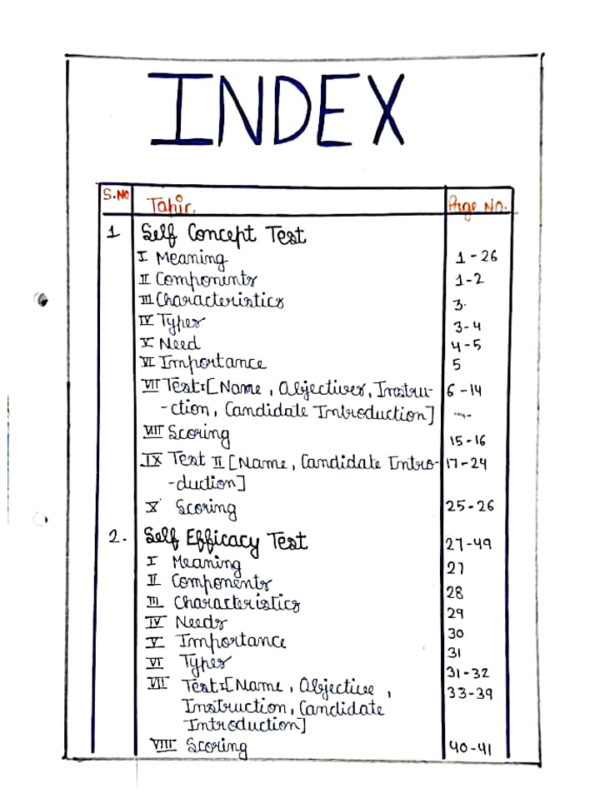 INDEX
S.No Topic. Page No.
1 Self Concept Test
I Meaning 1-26
II Components 1-2
III Characteristics 3.
IV Types 3-4
V Need 4-5
VI Importance 5
VII Test:[Name, Objectives, Instru- 6-14
-ction, Candidate Introduction]
VIII Scoring 15-16
IX Test II [Name, Candidate Intro- 17-24
-duction]
X Scoring 25-26
2. Self Efficacy Test 27-49
I Meaning 27
II Components 28
III Characteristics 29
IV Needs 30
V Importance 31
VI Types 31-32
VII Test:[Name, Objective, 33-39
Instruction, Candidate
Introduction]
VIII Scoring 40-41